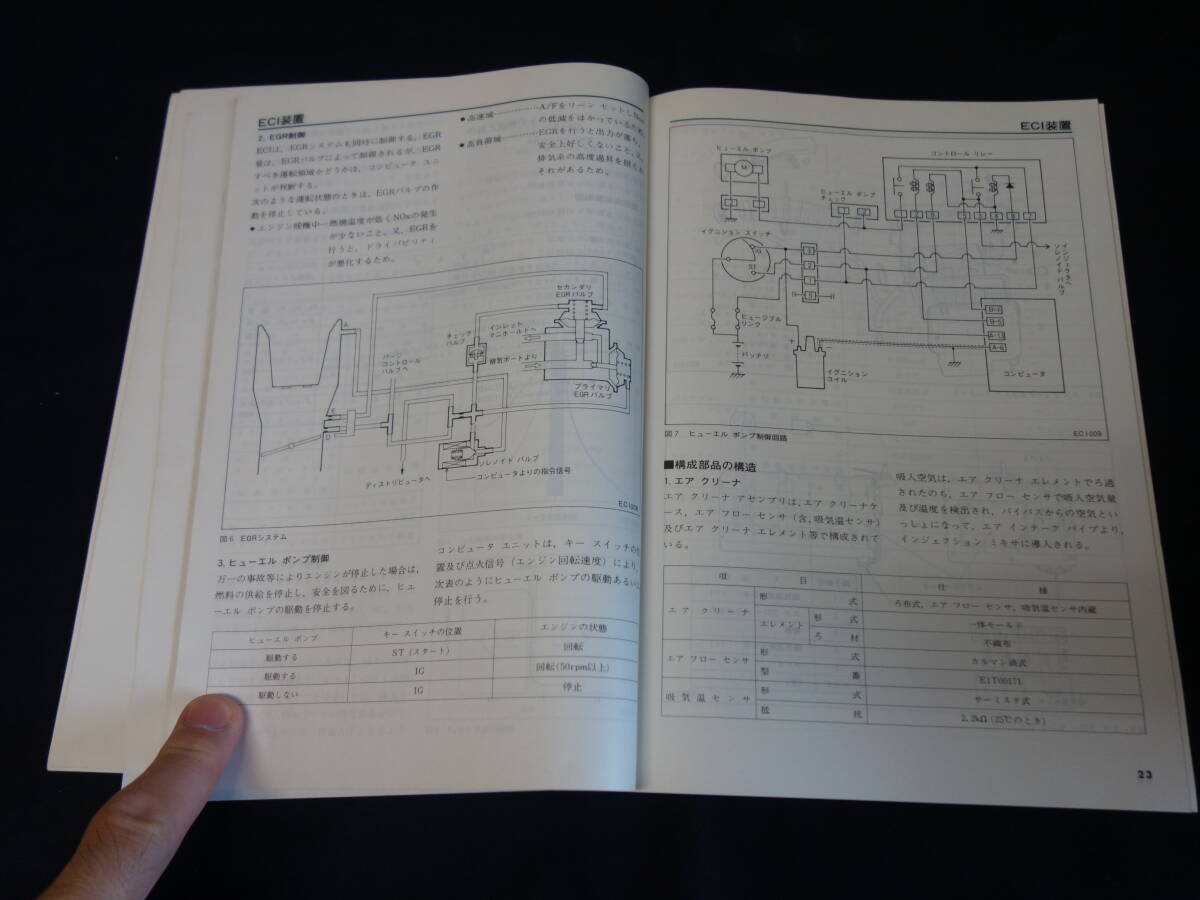 ECI装置
2. EGR制御
ECIは、EGRシステムも同時に制御する。EGR
量は、EGRバルブによって制御されるが、EGR
すべき運転領域かどうかは、コンピュータ ユニ
ットが判断する。
次のような運転状態のときは、EGRバルブの作
動を停止している。
●エンジン暖機中…燃焼温度が低くNOxの発生
が少ないこと。又、EGRを
行うと、ドライバビリティ
が悪化するため。
●高速域…………A/Fをリーン セットしNOx
の低減をはかっているため
●高負荷域………EGRを行うと出力が落ち、
安全上好しくないこと。又、
排気系の高度過昇を招く
それがあるため。
セカンダリ
EGRバルブ
チェック
バルブ
インレット
マニホールドへ
排気ポートより
パージ
コントロール
バルブへ
プライマリ
EGRバルブ
A
E
D
ソレノイド バルブ
コンピュータよりの指令信号
ディストリビュータへ
EC1008
図6 EGRシステム
3. ヒューエル ポンプ制御
万一の事故等によりエンジンが停止した場合は、
燃料の供給を停止し、安全を図るために、ヒュ
ーエル ポンプの駆動を停止する。
コンピュータ ユニットは、キー スイッチの位
置及び点火信号（エンジン回転速度）により、
次表のようにヒューエル ポンプの駆動あるいは
停止を行う。
ヒューエル ポンプ キー スイッチの位置 エンジンの状態
駆動する ST（スタート） 回転
駆動する IG 回転（50rpm以上）
駆動しない IG 停止
ECI装置
ヒューエル ポンプ
M
ヒューエル ポンプ
チェック
コントロール リレー
イグニション スイッチ
IG
ST
ヒュージブル
リンク
バッテリ
イグニション
コイル
インジェクタへ
ソレノイド バルブ
B-5
A-13
A-6
コンピュータ
図7 ヒューエル ポンプ制御回路
EC1009
■構成部品の構造
1. エア クリーナ
エア クリーナ アセンブリは、エア クリーナケ
ース、エア フロー センサ（含、吸気温センサ）
及びエア クリーナ エレメント等で構成されて
いる。
吸入空気は、エア クリーナ エレメントでろ過
されたのち、エア フロー センサで吸入空気量
及び温度を検出され、バイパスからの空気とい
っしょになって、エア インテーク パイプより、
インジェクション ミキサに導入される。
項 目 仕 様
エア クリーナ 形 式 ろ布式、エア フロー センサ、吸気温センサ内蔵
エレメント 形 式 一体モールド
ろ 材 不織布
エア フロー センサ 形 式 カルマン渦式
型 番 E1T00171
吸気温センサ 形 式 サーミスタ式
抵 抗 2.2kΩ（25℃のとき）
23